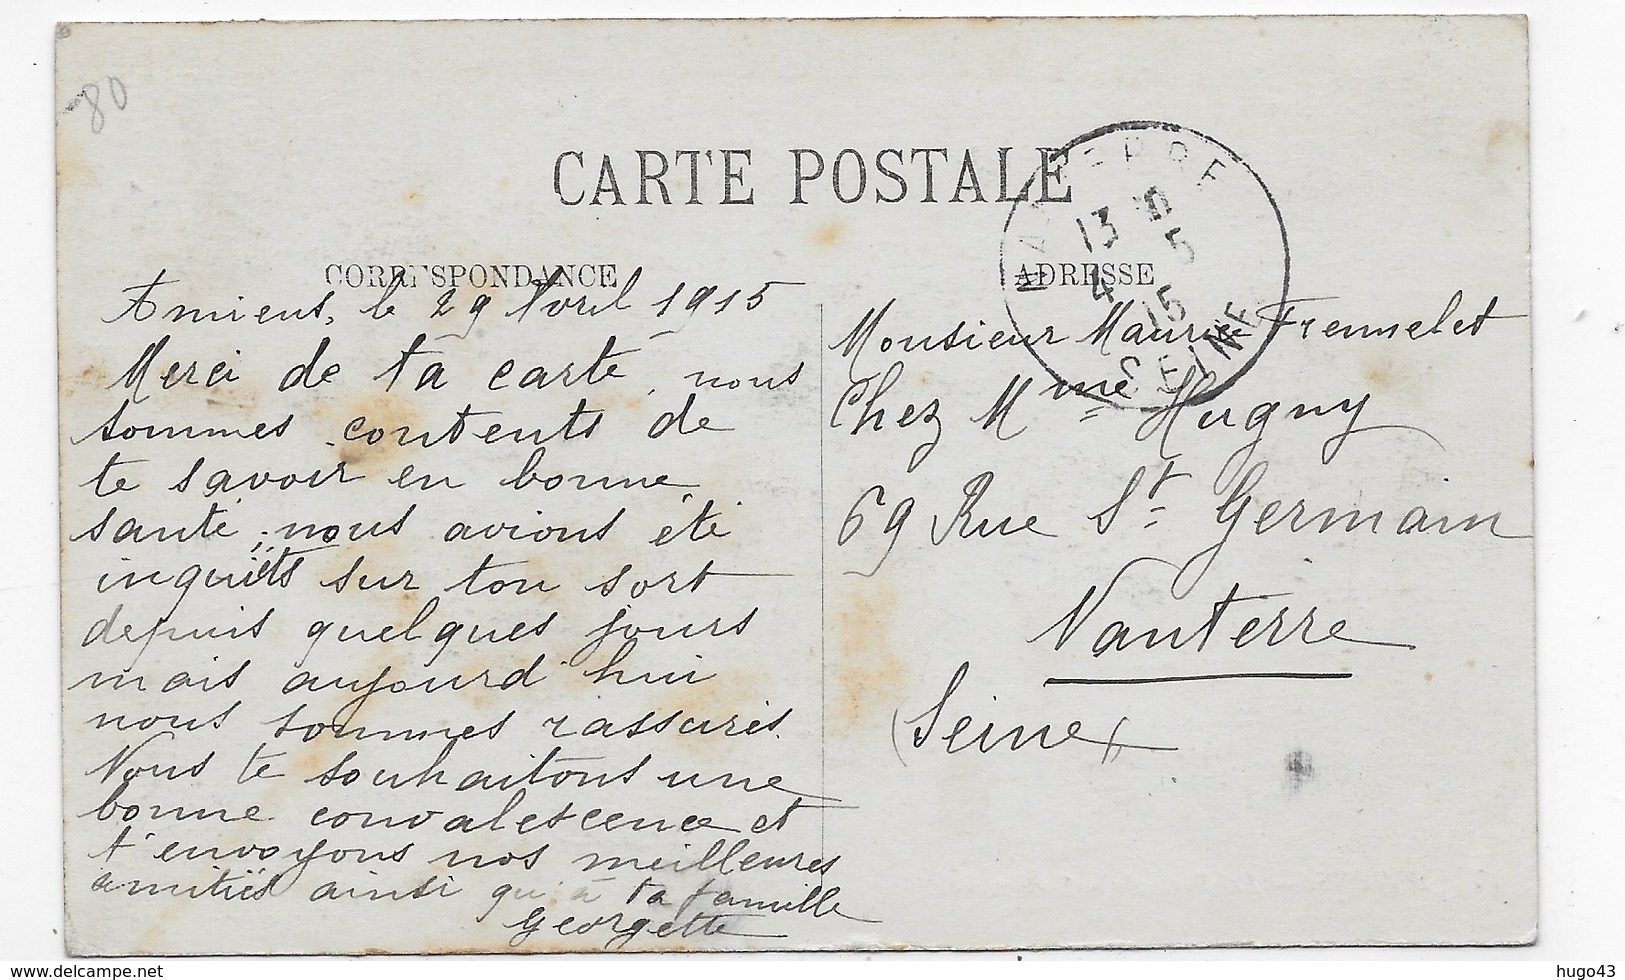 80
CARTE POSTALE
NANTERRE
13 10
4 5
15
SEINE
CORRESPONDANCE
Amiens, le 29 Avril 1915
Merci de ta carte, nous
sommes contents de
te savoir en bonne
santé, nous avions été
inquiets sur ton sort
depuis quelques jours
mais aujourd'hui
nous sommes rassurés.
Nous te souhaitons une
bonne convalescence et
t'envoyons nos meilleures
amitiés ainsi qu'à ta famille
Georgette
ADRESSE
Monsieur Maurice Fremmelet
Chez Mme Hugny
69 Rue St Germain
Nanterre
(Seine)
delcampe.net
hugo43